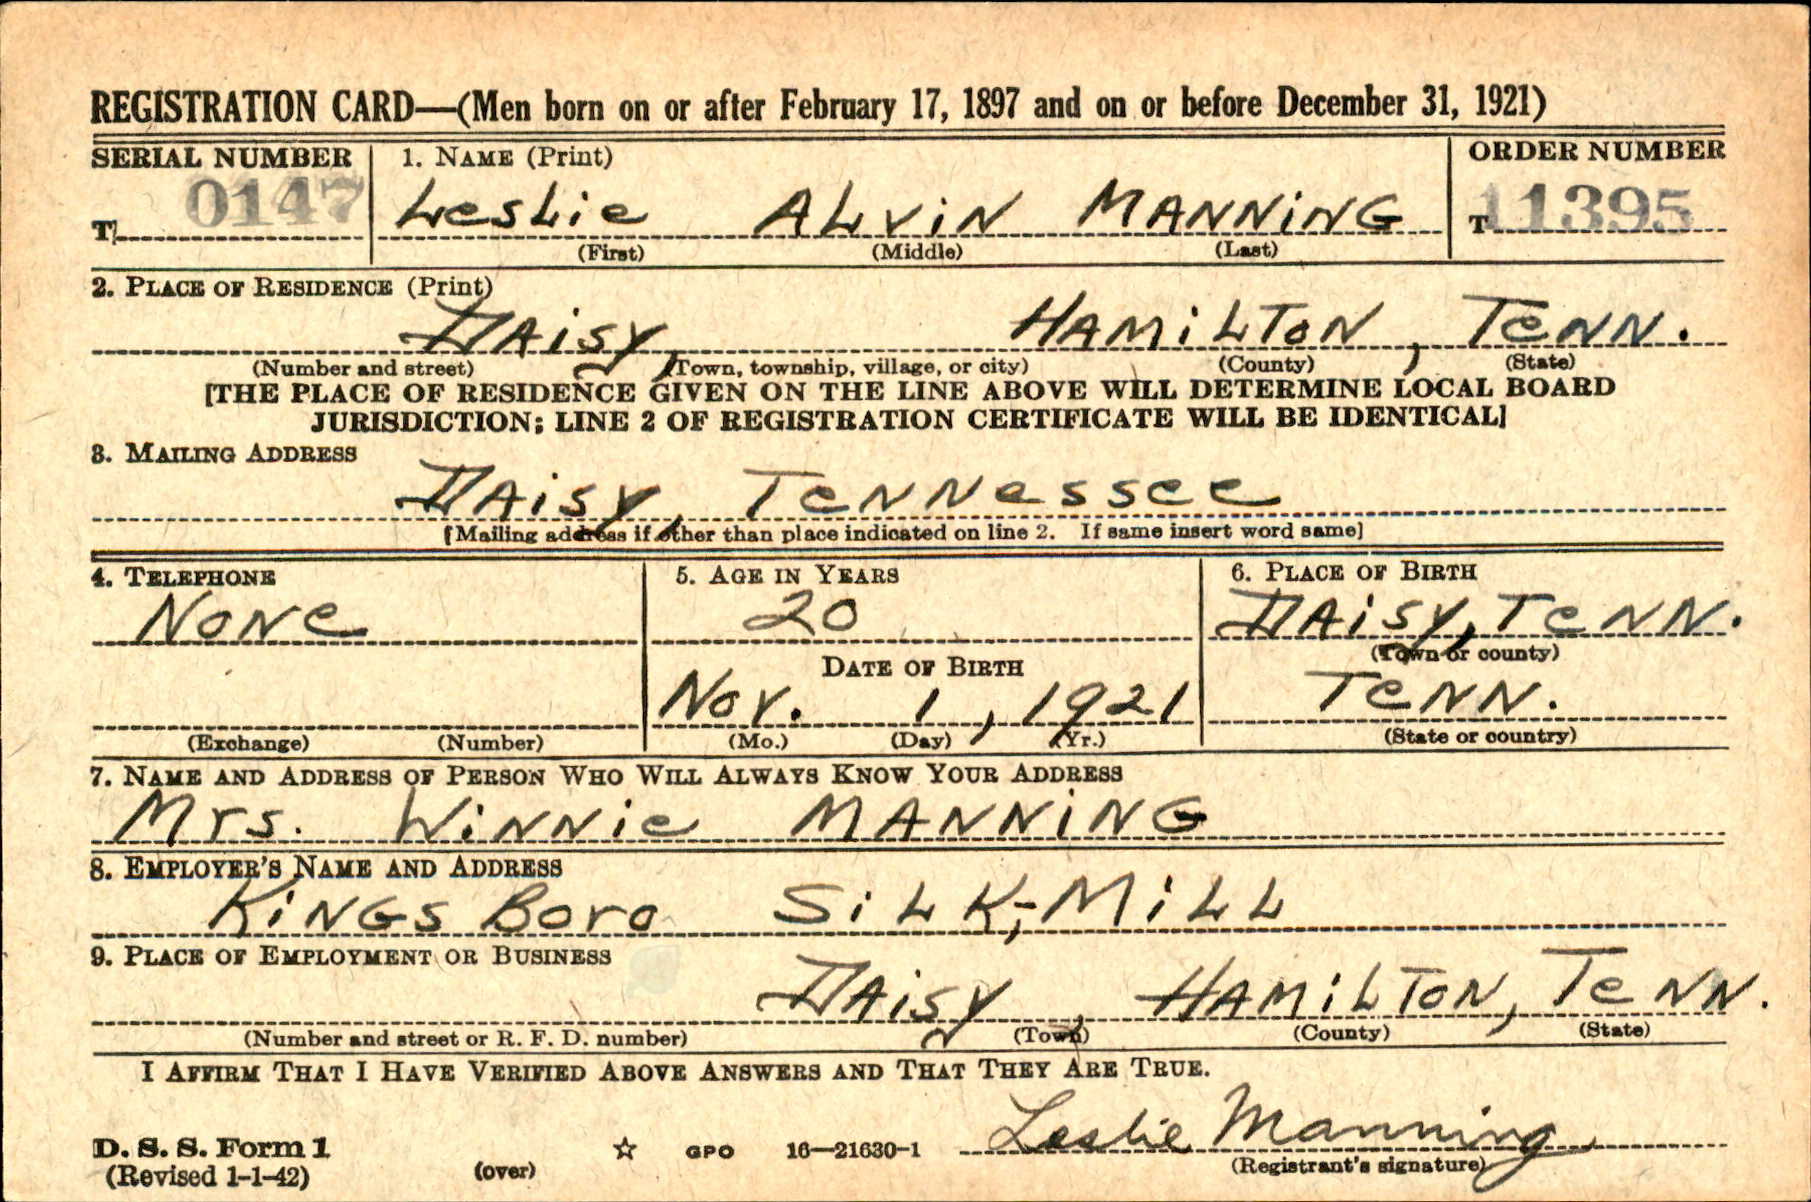 REGISTRATION CARD—(Men born on or after February 17, 1897 and on or before December 31, 1921)
SERIAL NUMBER 1. NAME (Print) ORDER NUMBER
T 0147 Leslie ALViN MANNiNG T 11395
(First) (Middle) (Last)
2. PLACE OF RESIDENCE (Print)
DAiSy, HAMiLTON, TeNN.
(Number and street) (Town, township, village, or city) (County) (State)
[THE PLACE OF RESIDENCE GIVEN ON THE LINE ABOVE WILL DETERMINE LOCAL BOARD
JURISDICTION; LINE 2 OF REGISTRATION CERTIFICATE WILL BE IDENTICAL]
3. MAILING ADDRESS
DAiSy, TeNNessee
[Mailing address if other than place indicated on line 2. If same insert word same]
4. TELEPHONE 5. AGE IN YEARS 6. PLACE OF BIRTH
NoNe 20 DAiSy, TeNN.
(Town or county)
DATE OF BIRTH
Nov. 1, 1921 TeNN.
(Exchange) (Number) (Mo.) (Day) (Yr.) (State or country)
7. NAME AND ADDRESS OF PERSON WHO WILL ALWAYS KNOW YOUR ADDRESS
Mrs. WiNNie MANNiNG
8. EMPLOYER'S NAME AND ADDRESS
KiNGS Boro SiLK, MiLL
9. PLACE OF EMPLOYMENT OR BUSINESS
DAiSy, HAMiLTON, TeNN.
(Number and street or R. F. D. number) (Town) (County) (State)
I AFFIRM THAT I HAVE VERIFIED ABOVE ANSWERS AND THAT THEY ARE TRUE.
Leslie Manning
D. S. S. Form 1 (over) ☆ GPO 16—21630-1 (Registrant's signature)
(Revised 1-1-42)